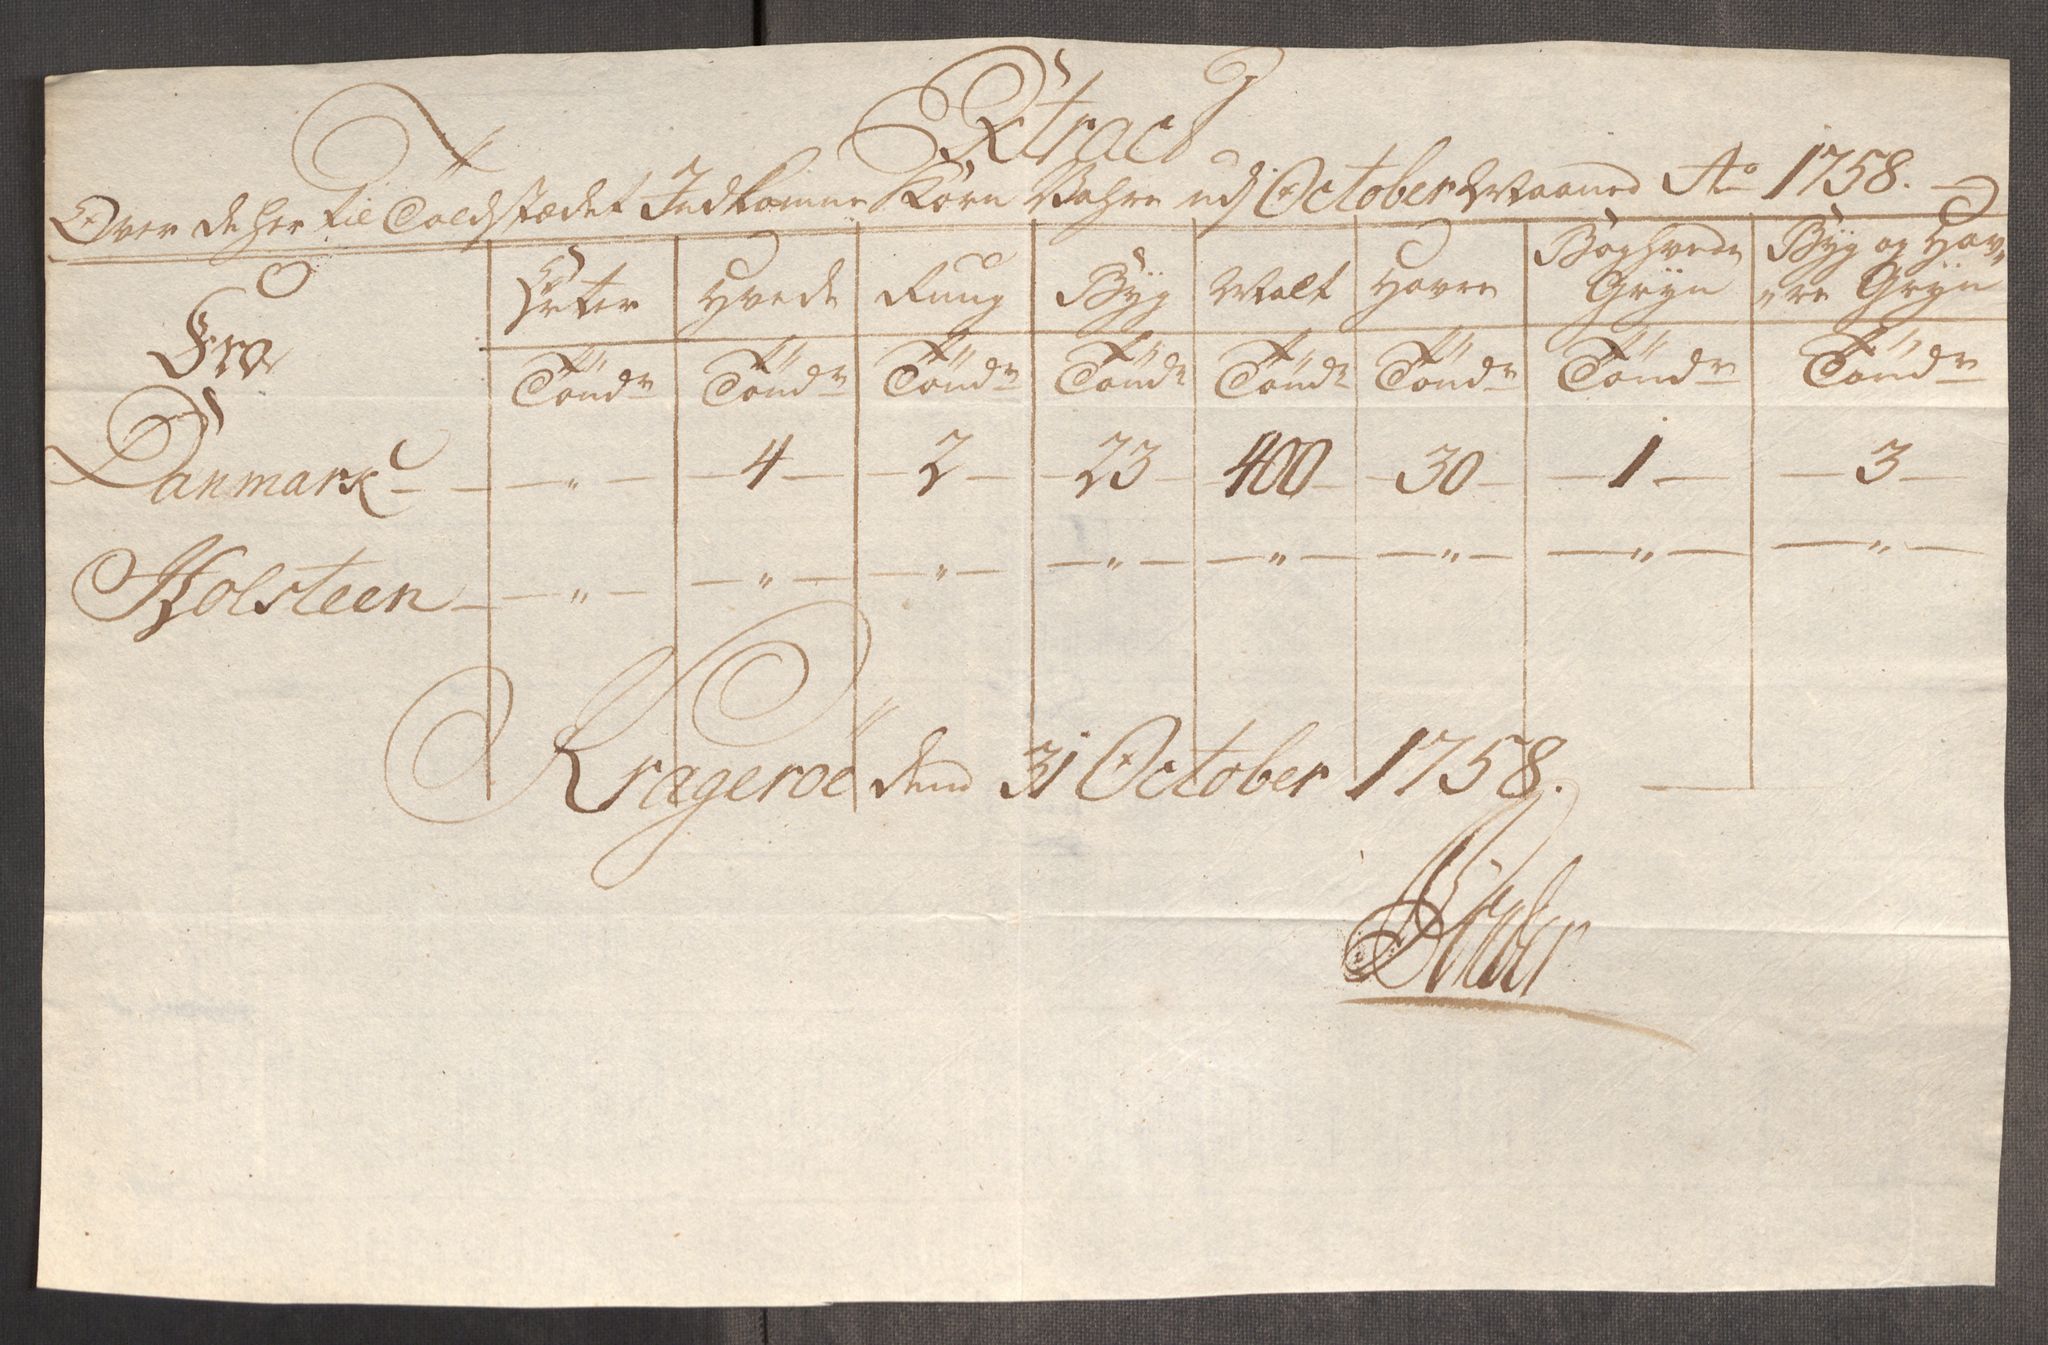 Extract
Over de her til Toldstædet Indkomne Korn Vahre udj October Maaned Ao 1758.
Fra | Erter | Hvede | Ruug | Byg | Malt | Havre | Boghvede Gryn | Byg og Hav=re Gryn
Tönder | Tönder | Tönder | Tönder | Tönder | Tönder | Tönder | Tönder
Danmark | " | 4 | 2 | 23 | 400 | 30 | 1 | 3
Holsteen | " | " | " | " | " | " | " | "
Krageröe dend 31 October 1758.